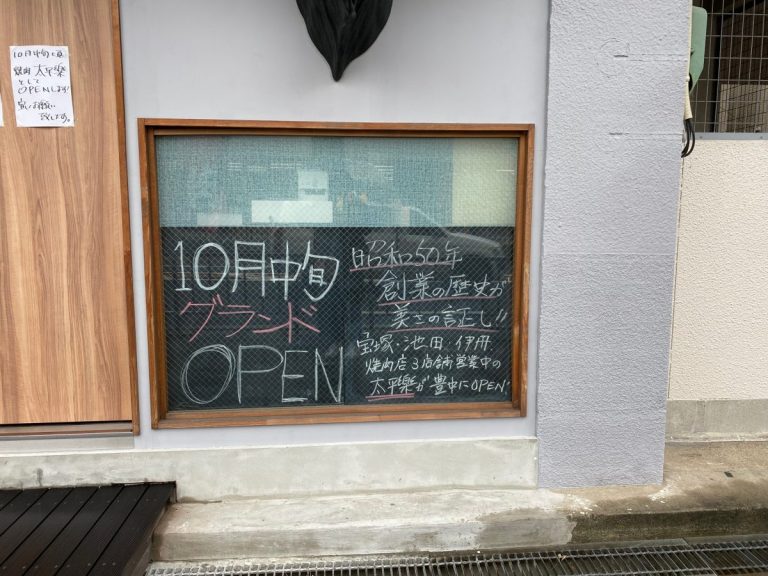 10月中旬
焼肉 太平楽
として
OPENします!
宜しくお願い
致します。
10月中旬
グランド
OPEN
昭和50年
創業の歴史が
美さの証し!!
宝塚・池田・伊丹
焼肉店3店舗営業中の
太平楽が豊中にOPEN